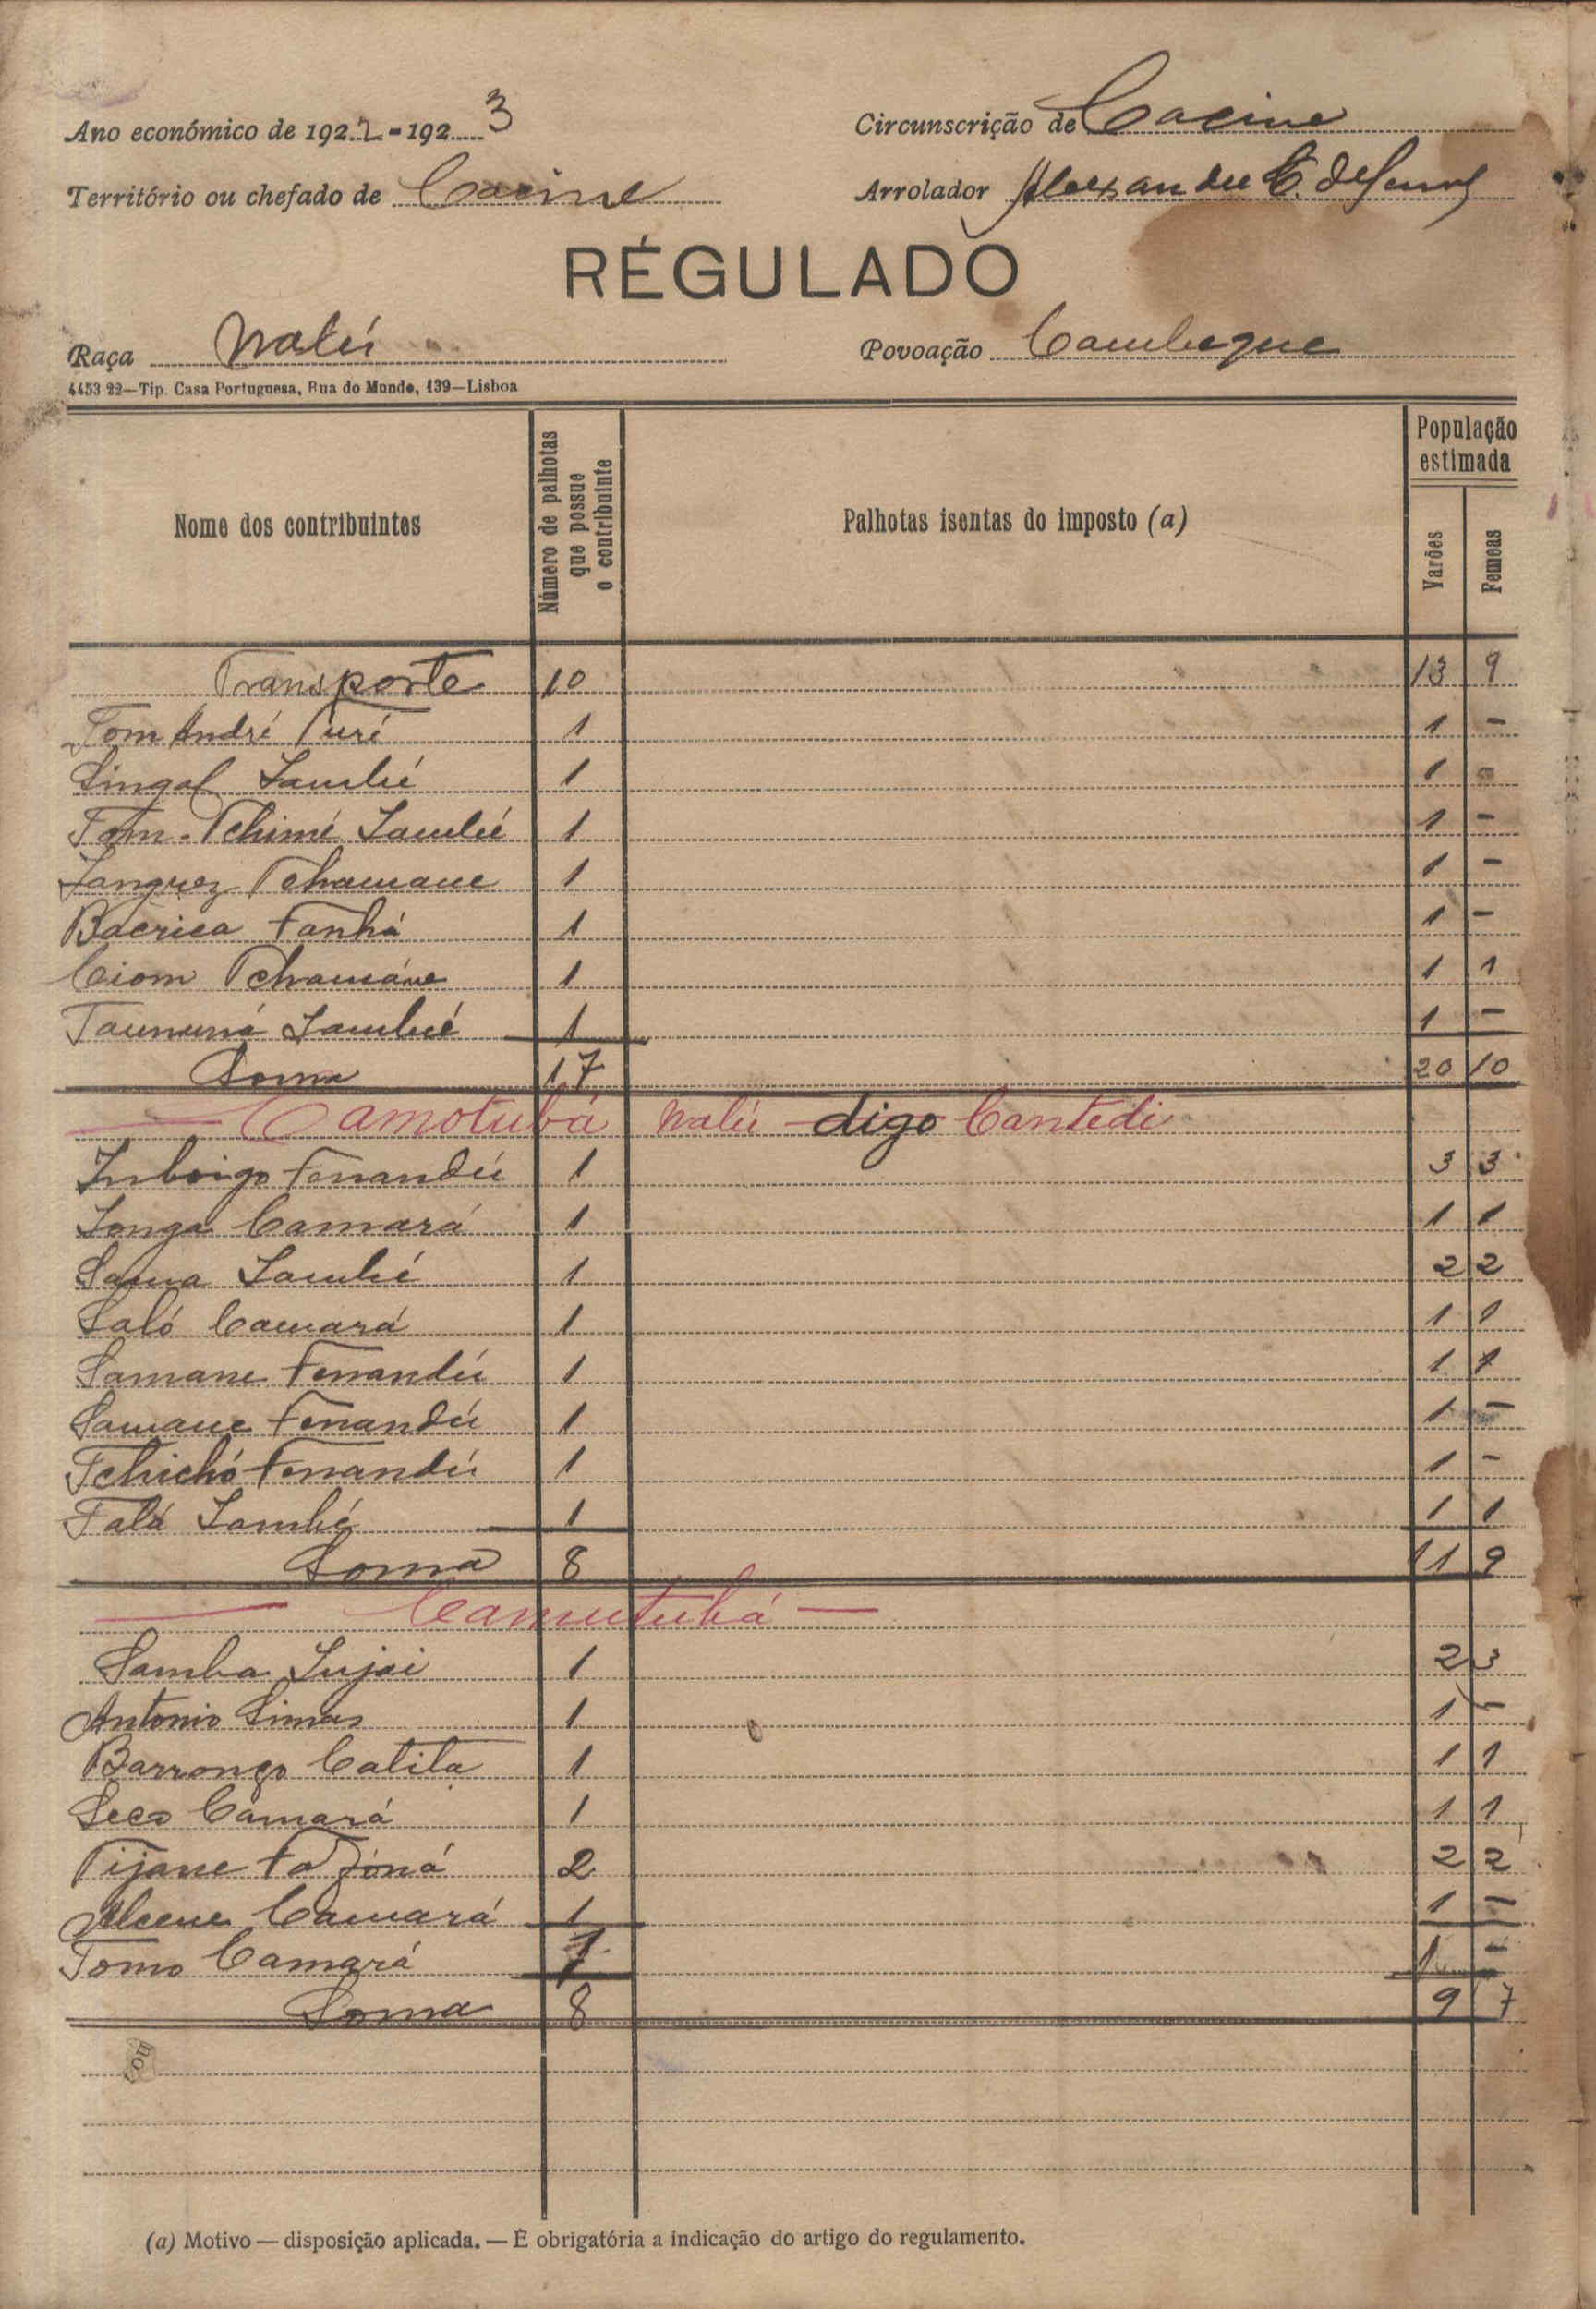 Ano económico de 1922-1923
Circunscrição de Cacine
Território ou chefado de Cacine
Arrolador Alexandre
RÉGULADO
Raça Nalú
Povoação Cambeque
4453 22—Tip. Casa Portuguesa, Rua do Mundo, 139—Lisboa
Nome dos contribuintes
Número de palhotas que possue o contribuinte
Palhotas isentas do imposto (a)
População estimada
Varões
Femeas
Transporte 10 13 9
Tom André Turé 1 1 -
Lambé 1 1 -
Tom-Tchimé Lambé 1 1 -
Tchamane 1 1 -
Bacrica Fanhá 1 1 -
Ciom Tchamáne 1 1 1
Lambé 1 1 -
Soma 17 20 10
— Camotubá Nalú — digo Cantedi
1 3 3
Camará 1 1 1
Lambé 1 2 2
Saló Camará 1 1 1
Samane 1 1 1
Samane 1 1 -
Tchichó 1 1 -
Falá Lambé 1 1 1
Soma 8 11 9
— Camutubá —
Samba 1 2 3
Antonio Simas 1 1 -
Barronço Catita 1 1 1
Seco Camará 1 1 1
Tijane 2 2 2
Camará 1 1 -
Tomo Camará 1 1 -
Soma 8 9 7
(a) Motivo — disposição aplicada. — É obrigatória a indicação do artigo do regulamento.